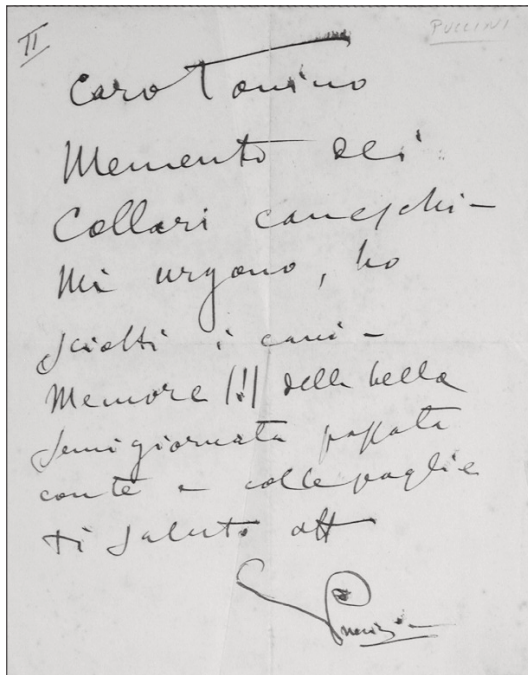 II
PUCCINI
Caro Tonino
Memento dei
Collari caneschi –
Mi urgono, ho
sciolti i cani –
Memore (!) della bella
semigiornata passata
con te e colle paglie
ti saluto aff
GPuccini